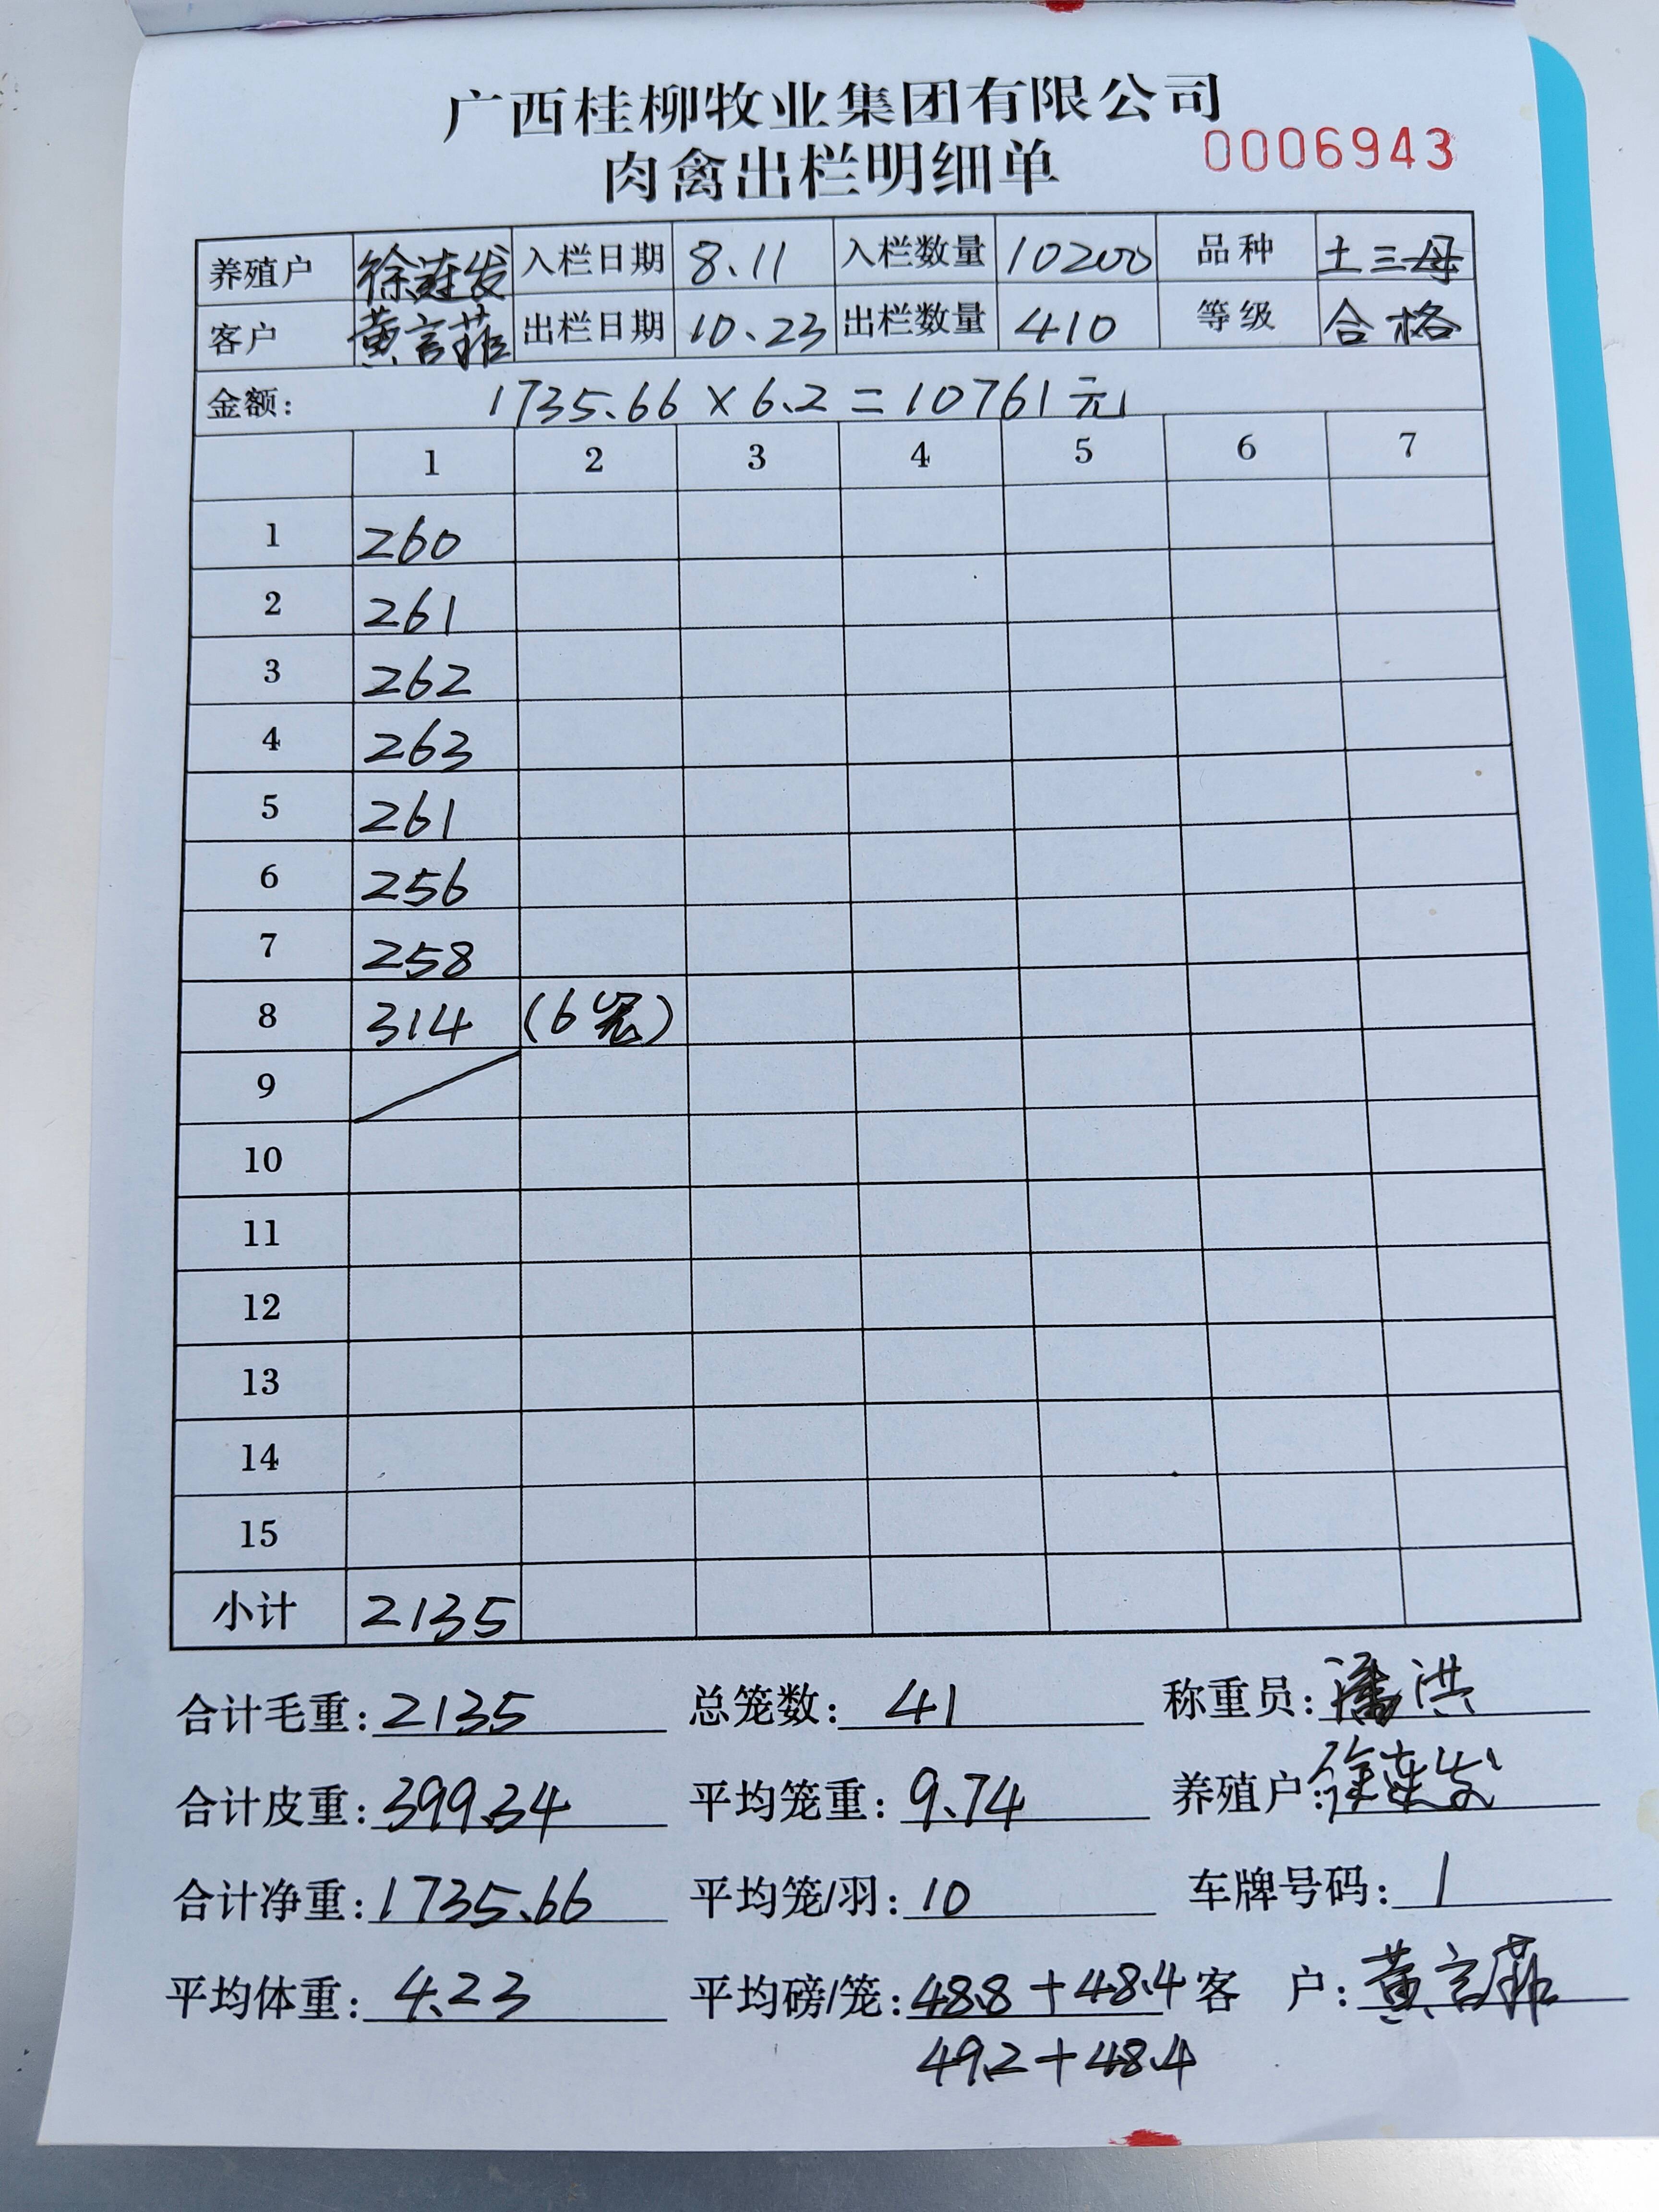 广西桂柳牧业集团有限公司
肉禽出栏明细单 0006943
养殖户 徐莲发 入栏日期 8.11 入栏数量 10200 品种 土三母
客户 黄言菲 出栏日期 10.23 出栏数量 410 等级 合格
金额: 1735.66×6.2=10761元
1 2 3 4 5 6 7
1 260
2 261
3 262
4 263
5 261
6 256
7 258
8 314 (6笼)
9
10
11
12
13
14
15
小计 2135
合计毛重:2135 总笼数:41 称重员:潘洪
合计皮重:399.34 平均笼重:9.74 养殖户:徐莲发
合计净重:1735.66 平均笼/羽:10 车牌号码:1
平均体重:4.23 平均磅/笼:48.8+48.4 客 户:黄言菲
49.2+48.4